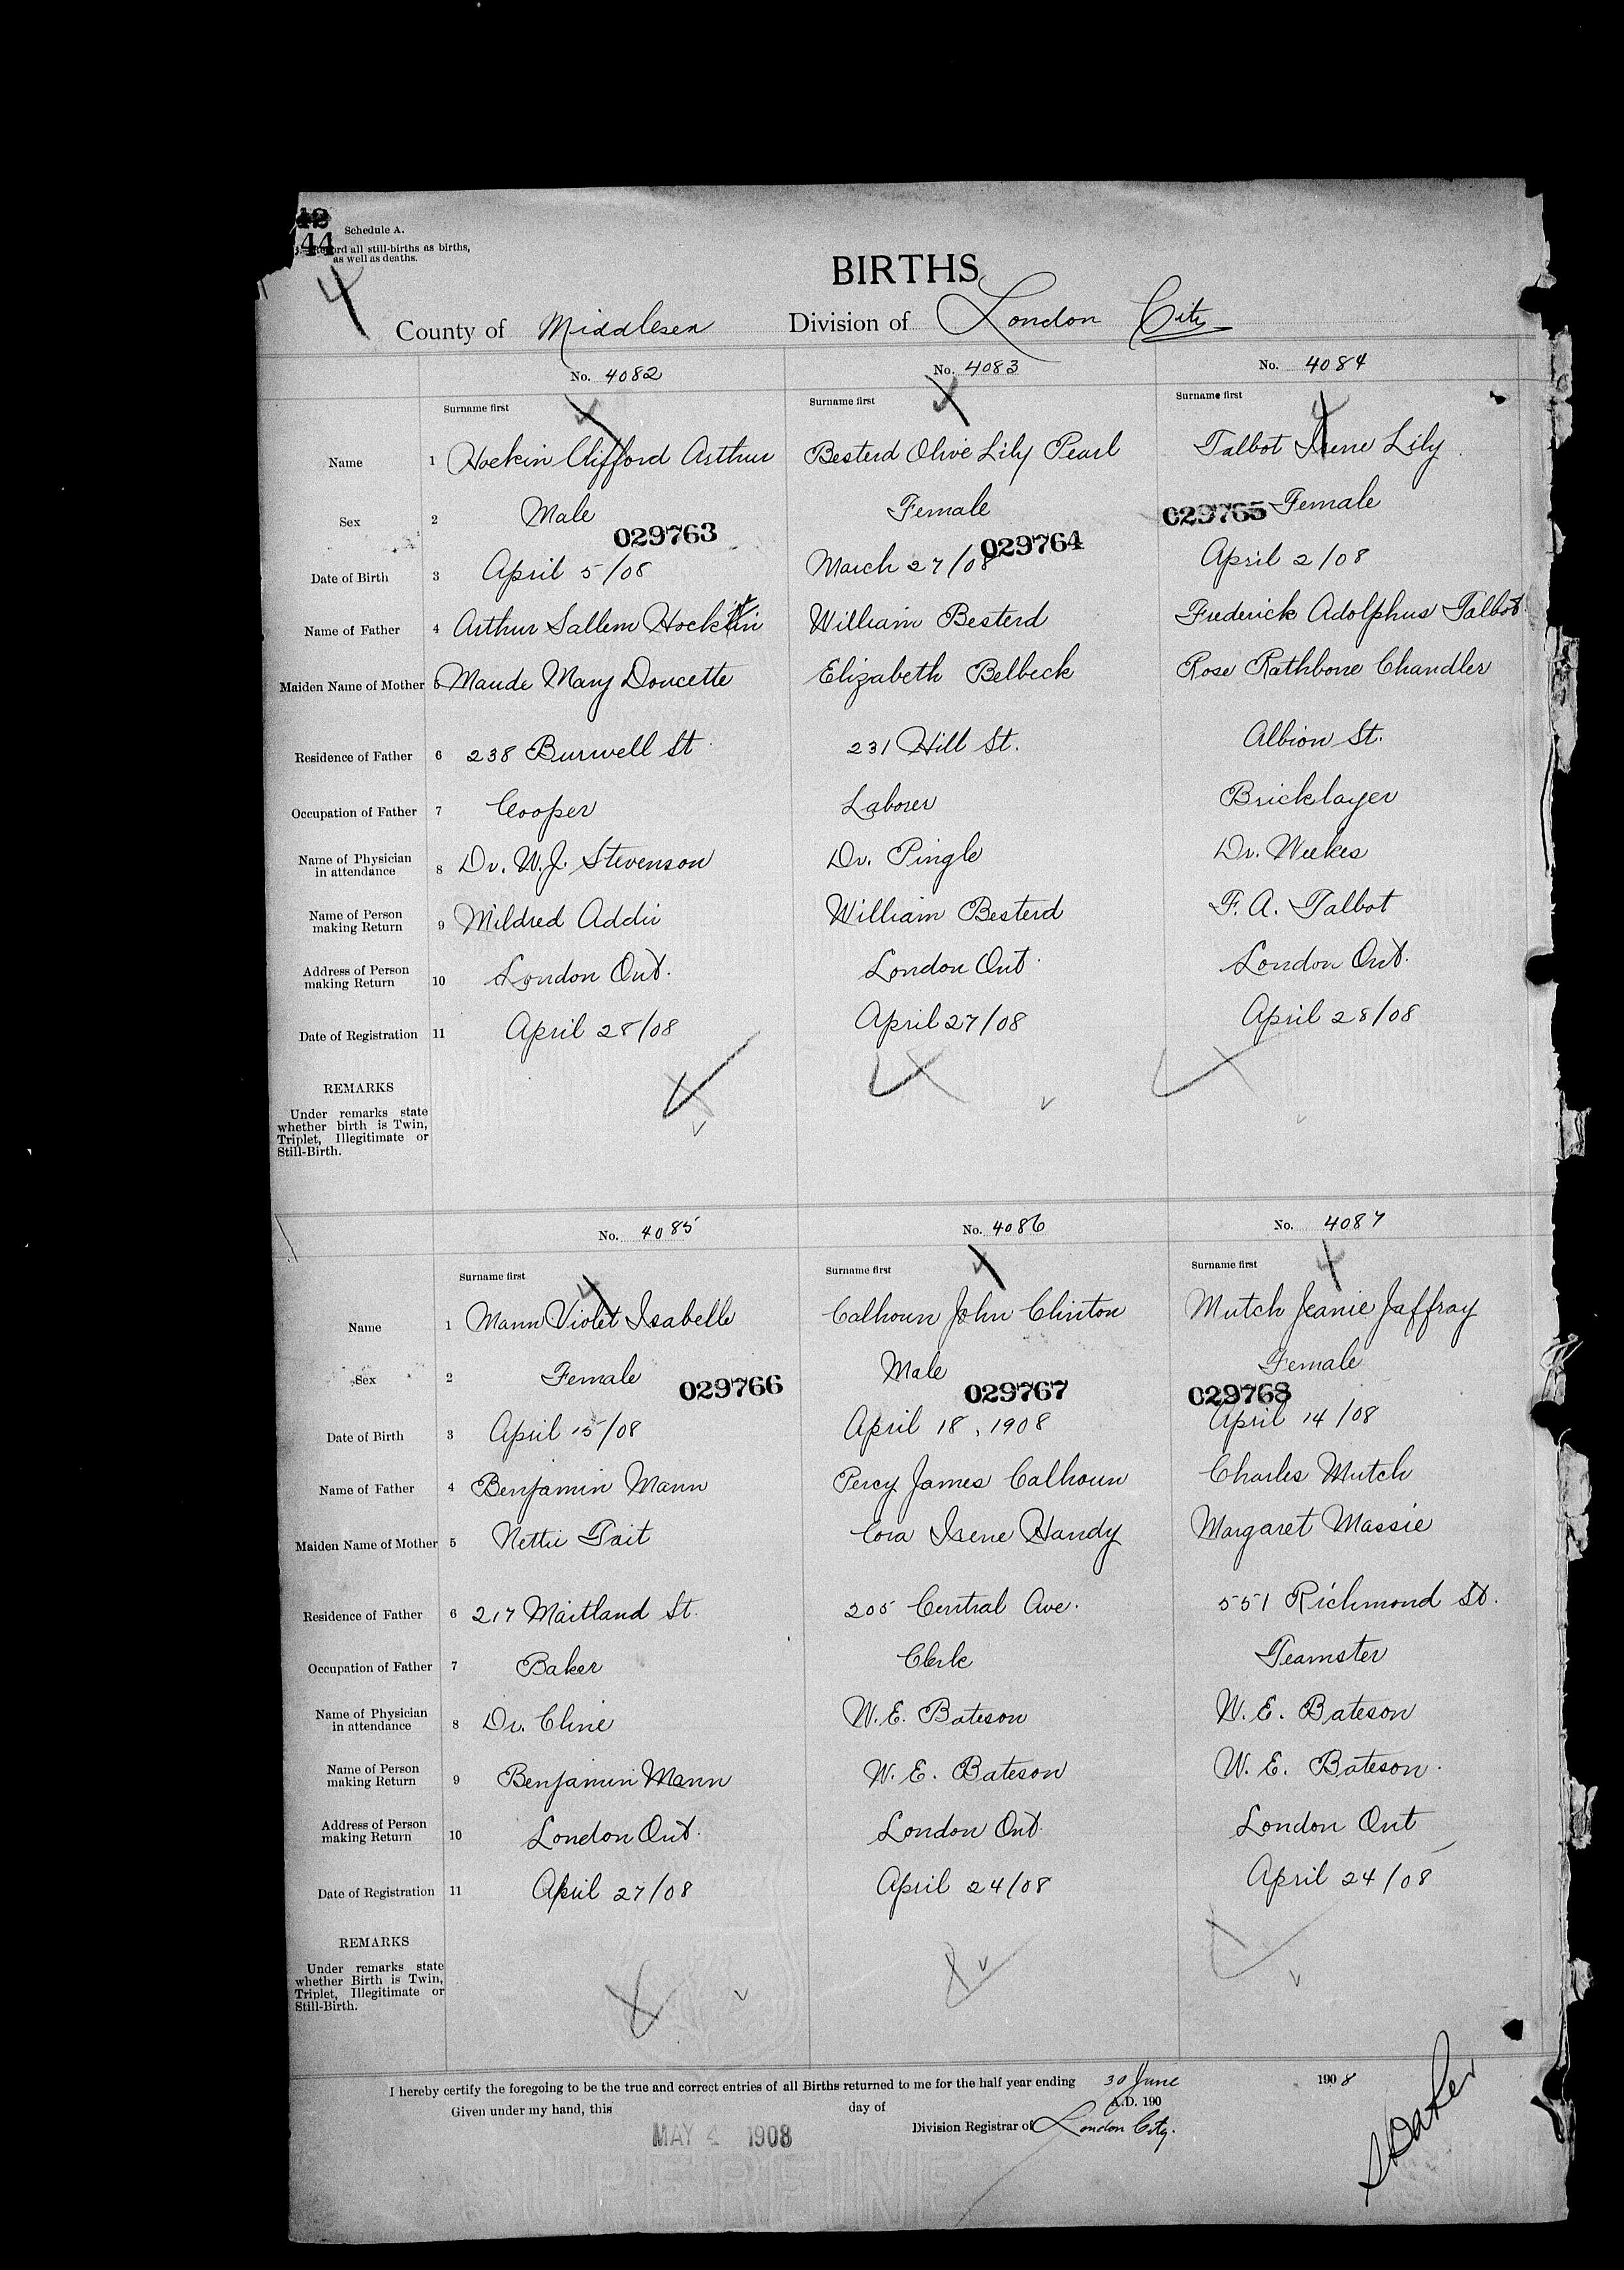 42
44
Schedule A.
record all still-births as births,
as well as deaths.
4
BIRTHS
County of Middlesex Division of London City
No. 4082 No. 4083 No. 4084
Surname first Surname first Surname first
Name 1 Hockin Clifford Arthur Besterd Olive Lily Pearl Talbot Irene Lily
Sex 2 Male Female Female
029763 029764 029765
Date of Birth 3 April 5/08 March 27/08 April 2/08
Name of Father 4 Arthur Sallem Hockin William Besterd Frederick Adolphus Talbot
Maiden Name of Mother 5 Maude Mary Doucette Elizabeth Belbeck Rose Rathbone Chandler
Residence of Father 6 238 Burwell St 231 Hill St. Albion St.
Occupation of Father 7 Cooper Laborer Bricklayer
Name of Physician
in attendance 8 Dr. W.J. Stevenson Dr. Pingle Dr. Weekes
Name of Person
making Return 9 Mildred Addie William Besterd F. A. Talbot
Address of Person
making Return 10 London Ont. London Ont. London Ont.
Date of Registration 11 April 28/08 April 27/08 April 28/08
REMARKS
Under remarks state
whether birth is Twin,
Triplet, Illegitimate or
Still-Birth.
No. 4085 No. 4086 No. 4087
Surname first Surname first Surname first
Name 1 Mann Violet Isabelle Calhoun John Clinton Mutch Jeanie Jaffray
Sex 2 Female Male Female
029766 029767 029768
Date of Birth 3 April 15/08 April 18, 1908 April 14/08
Name of Father 4 Benjamin Mann Percy James Calhoun Charles Mutch
Maiden Name of Mother 5 Nettie Tait Cora Irene Handy Margaret Massie
Residence of Father 6 217 Maitland St. 205 Central Ave. 551 Richmond St.
Occupation of Father 7 Baker Clerk Teamster
Name of Physician
in attendance 8 Dr. Cline W. E. Bateson W. E. Bateson
Name of Person
making Return 9 Benjamin Mann W. E. Bateson W. E. Bateson.
Address of Person
making Return 10 London Ont. London Ont. London Ont
Date of Registration 11 April 27/08 April 24/08 April 24/08
REMARKS
Under remarks state
whether Birth is Twin,
Triplet, Illegitimate or
Still-Birth.
I hereby certify the foregoing to be the true and correct entries of all Births returned to me for the half year ending 30 June 1908
Given under my hand, this day of A.D. 190
MAY 4 1908
Division Registrar of London City.
S Baker
SUPERFINE